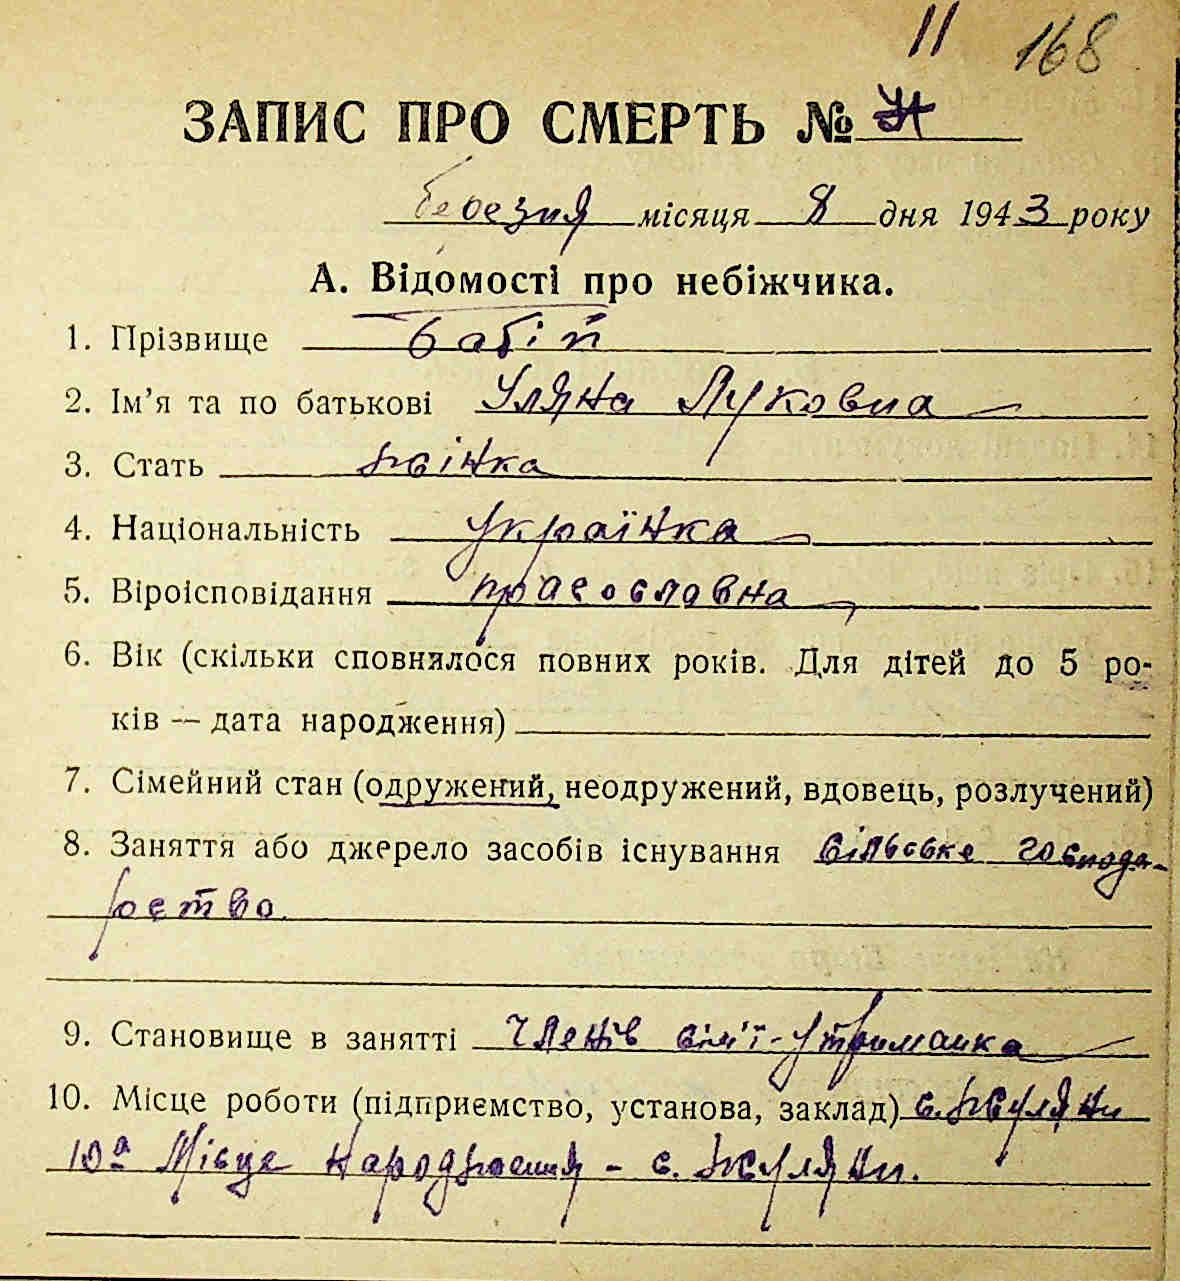 11 168
ЗАПИС ПРО СМЕРТЬ №
березня місяця 8 дня 1943 року
А. Відомості про небіжчика.
1. Прізвище Бабій
2. Ім'я та по батькові Уляна Луковна
3. Стать жінка
4. Національність українка
5. Віроісповідання православна
6. Вік (скільки сповнилося повних років. Для дітей до 5 ро-
ків — дата народження)
7. Сімейний стан (одружений, неодружений, вдовець, розлучений)
8. Заняття або джерело засобів існування сільське господа-
рство
9. Становище в занятті членів сім'ї - утриманка
10. Місце роботи (підприємство, установа, заклад) с. Жуляни
10а Місце народження - с. Жуляни.